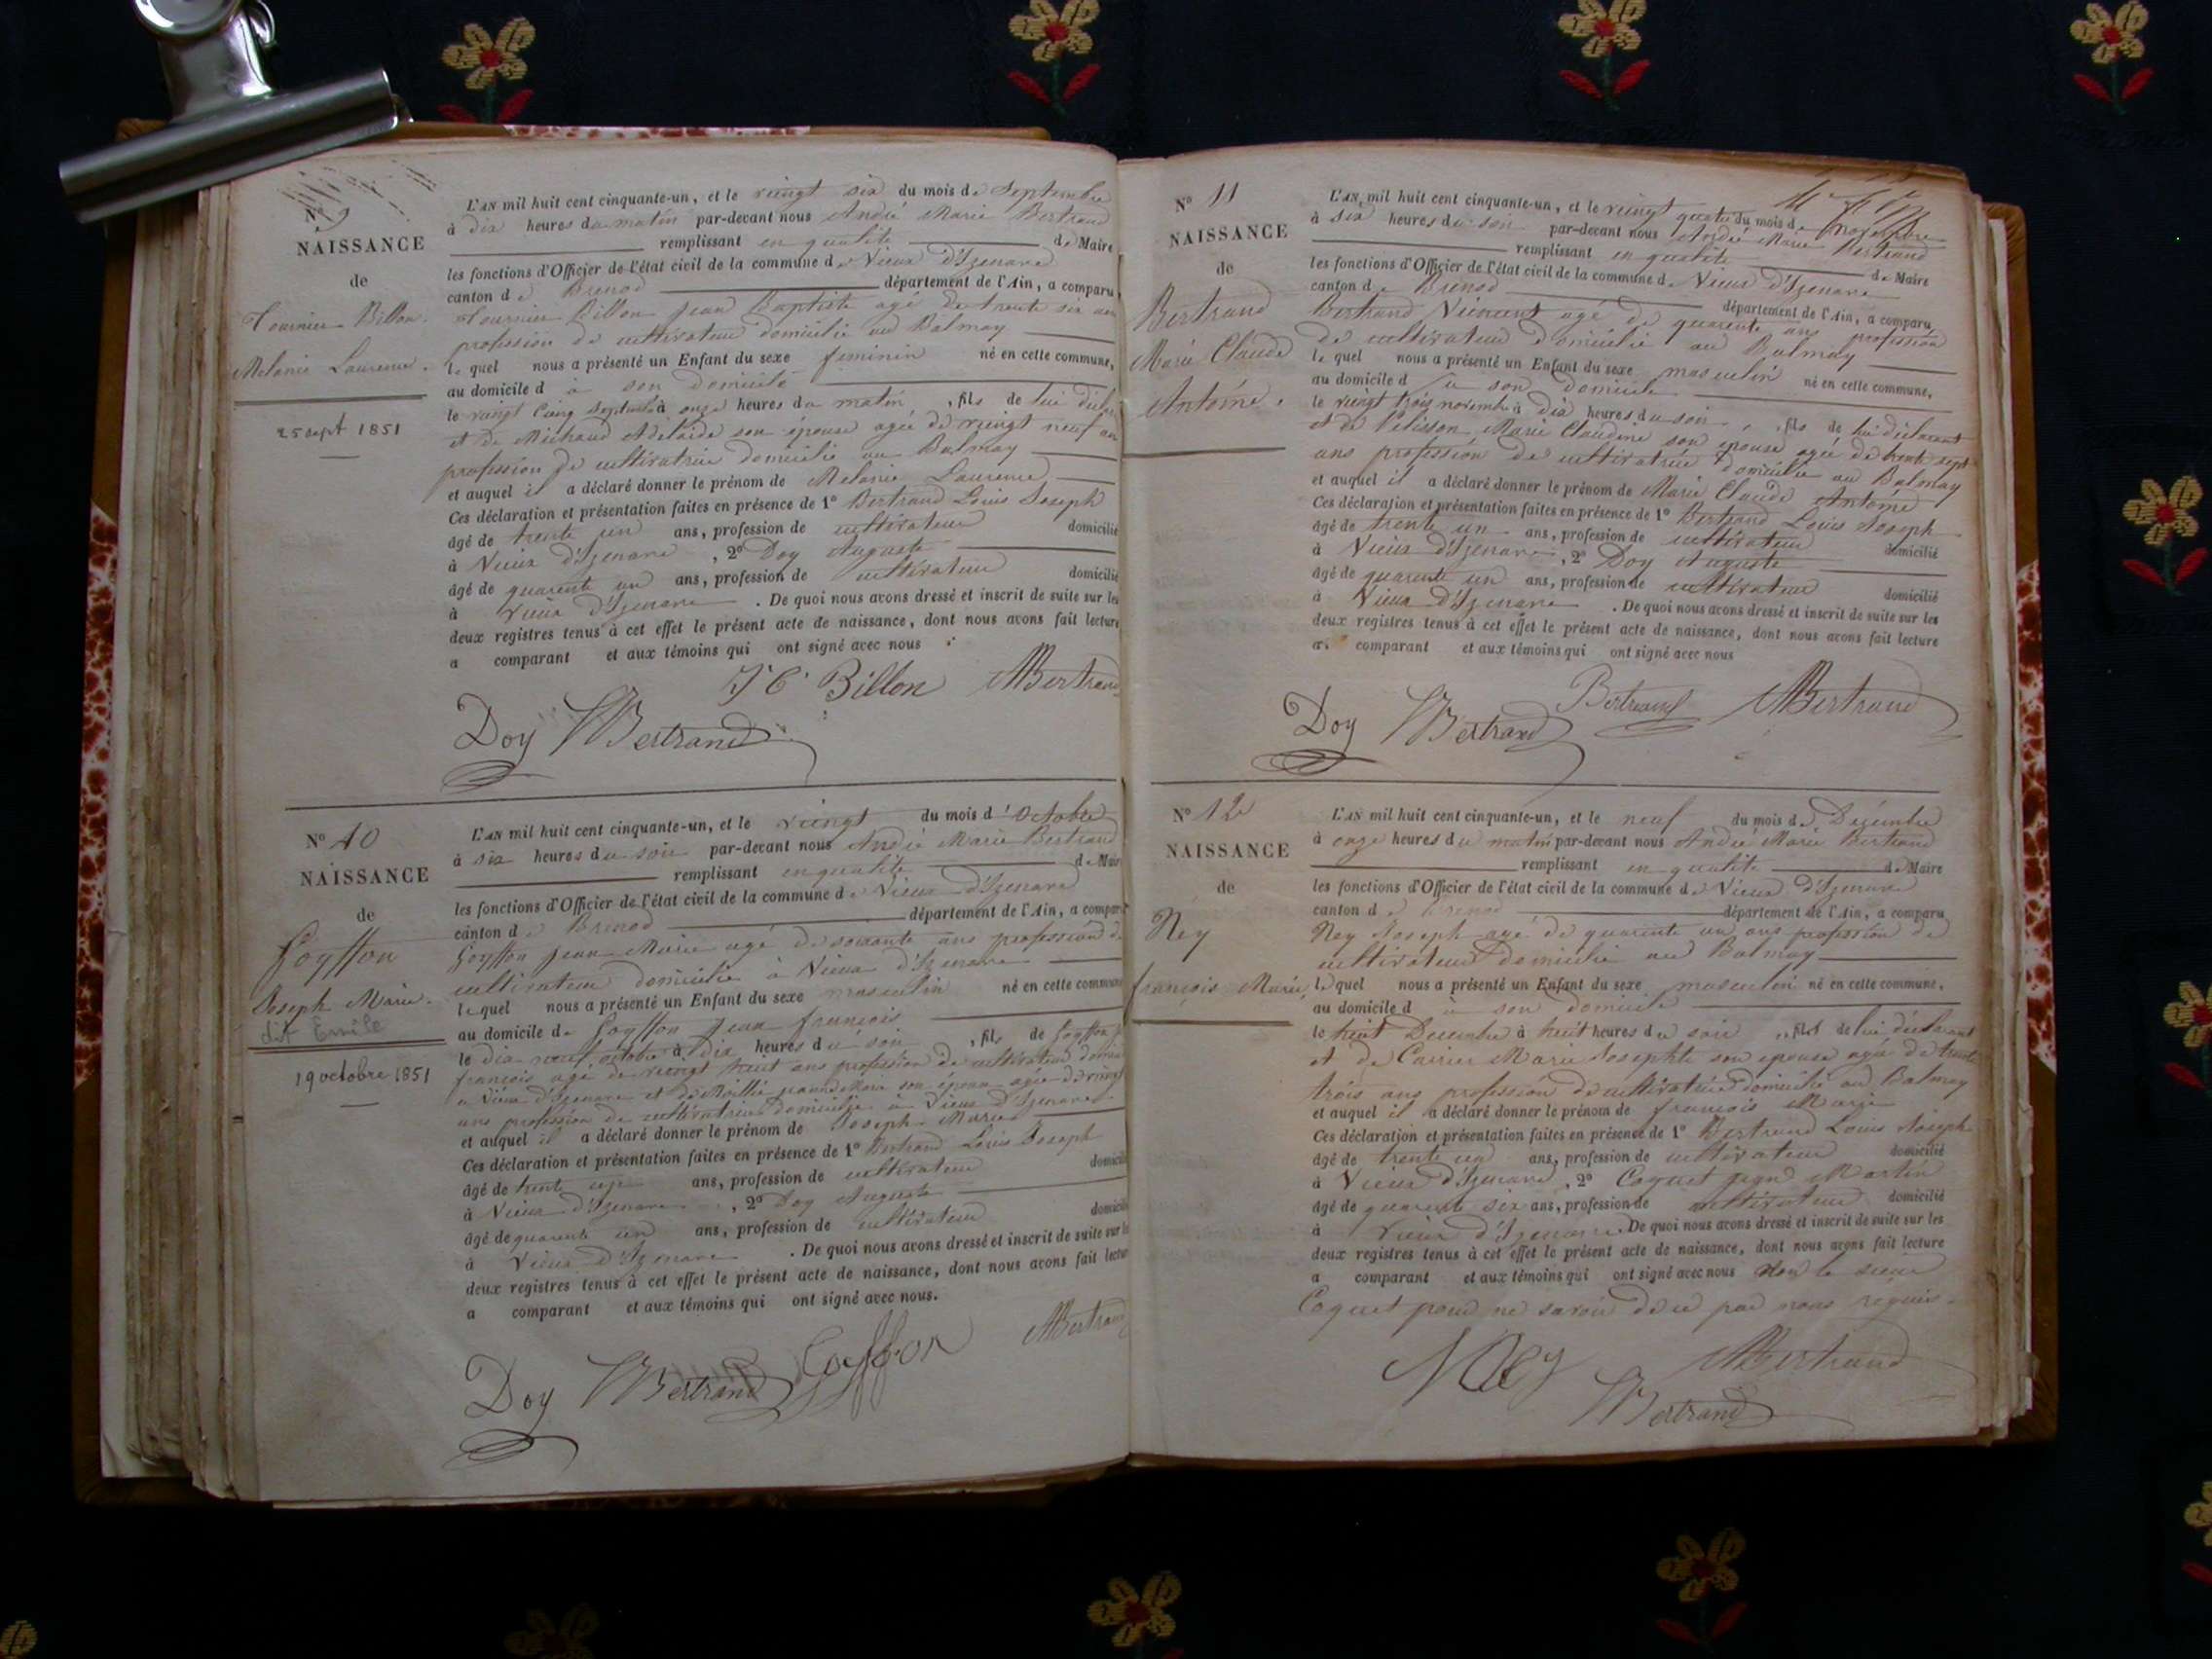 N° 9
NAISSANCE
de
Tournier Billon
Melanie Laurence.
25 sept 1851
L'AN mil huit cent cinquante-un, et le vingt six du mois de Septembre
à dix heures du matin par-devant nous André Marie Bertrand
remplissant en qualité de Maire
les fonctions d'Officier de l'état civil de la commune de Vieux d'Izenave
canton de Brenod département de l'Ain, a comparu
Tournier Billon Jean Baptiste agé de trente six ans
profession de cultivateur domicilié au Balmay
lequel nous a présenté un Enfant du sexe feminin né en cette commune,
au domicile d à son domicile
le vingt cinq septembre à onze heures du matin, fils de lui décla
et de Michaud Adelaide son epouse agée de vingt neuf ans
profession de cultivatrice domicilié au Balmay
et auquel il a déclaré donner le prénom de Melanie Laurence
Ces déclaration et présentation faites en présence de 1° Bertrand Louis Joseph
âgé de trente un ans, profession de cultivateur domicilié
à Vieux d'Izenave, 2° Doy Auguste
âgé de quarente un ans, profession de cultivateur domicilié
à Vieux d'Izenave. De quoi nous avons dressé et inscrit de suite sur les
deux registres tenus à cet effet le présent acte de naissance, dont nous avons fait lecture
a comparant et aux témoins qui ont signé avec nous
J B Billon AMBertrand
Doy LJBertrand
N° 10
NAISSANCE
de
Goyffon
Joseph Marie.
dit Emile
19 octobre 1851
L'AN mil huit cent cinquante-un, et le vingt du mois d'Octobre
à six heures du soir par-devant nous André Marie Bertrand
remplissant en qualité de Maire
les fonctions d'Officier de l'état civil de la commune de Vieux d'Izenave
canton de Brenod département de l'Ain, a comparu
Goyffon Jean Marie agé de soixante ans profession de
cultivateur domicilié à Vieux d'Izenave
lequel nous a présenté un Enfant du sexe masculin né en cette commune
au domicile de Goyffon Jean françois
le dix neuf octobre à dix heures du soir, fils de Goyffon J
françois agé de vingt huit ans profession de cultivateur domici
à Vieux d'Izenave et de Maria son épouse agée de vingt
ans profession de cultivatrice domicilié à Vieux d'Izenave.
et auquel il a déclaré donner le prénom de Joseph Marie
Ces déclaration et présentation faites en présence de 1° Bertrand Louis Joseph
âgé de trente un ans, profession de cultivateur domicilié
à Vieux d'Izenave, 2° Doy Auguste
âgé de quarente un ans, profession de cultivateur domicilié
à Vieux d'Izenave. De quoi nous avons dressé et inscrit de suite sur les
deux registres tenus à cet effet le présent acte de naissance, dont nous avons fait lecture
a comparant et aux témoins qui ont signé avec nous.
Goyffon AMBertrand
Doy LJBertrand
N° 11
NAISSANCE
de
Bertrand
Marie Claude
Antoine.
L'AN mil huit cent cinquante-un, et le vingt quatre du mois de novembre
à six heures du soir par-devant nous André Marie Bertrand
remplissant en qualité de Maire
les fonctions d'Officier de l'état civil de la commune de Vieux d'Izenave
canton de Brenod département de l'Ain, a comparu
Bertrand Vincent agé de quarente ans profession
de cultivateur domicilié au Balmay
lequel nous a présenté un Enfant du sexe masculin né en cette commune,
au domicile d à son domicile
le vingt trois novembre à dix heures du soir, fils de lui déclarant
et de Pélisson Marie Claudine son épouse agée de trente sept
ans profession de cultivatrice domicilié au Balmay
et auquel il a déclaré donner le prénom de Marie Claude Antoine
Ces déclaration et présentation faites en présence de 1° Bertrand Louis Joseph
âgé de trente un ans, profession de cultivateur domicilié
à Vieux d'Izenave, 2° Doy Auguste
âgé de quarente un ans, profession de cultivateur domicilié
à Vieux d'Izenave. De quoi nous avons dressé et inscrit de suite sur les
deux registres tenus à cet effet le présent acte de naissance, dont nous avons fait lecture
a comparant et aux témoins qui ont signé avec nous
Bertrand AMBertrand
Doy LJBertrand
N° 12
NAISSANCE
de
Ney
françois Marie
L'AN mil huit cent cinquante-un, et le neuf du mois de Décembre
à onze heures du matin par-devant nous André Marie Bertrand
remplissant en qualité de Maire
les fonctions d'Officier de l'état civil de la commune de Vieux d'Izenave
canton de Brenod département de l'Ain, a comparu
Ney Joseph agé de quarente un ans profession de
cultivateur domicilié au Balmay
lequel nous a présenté un Enfant du sexe masculin né en cette commune,
au domicile d à son domicile
le huit Decembre à huit heures du soir, fils de lui déclarant
et de Carrier Marie Josephte son epouse agée de trente
trois ans profession de cultivatrice domicilié au Balmay
et auquel il a déclaré donner le prénom de françois Marie
Ces déclaration et présentation faites en présence de 1° Bertrand Louis Joseph
âgé de trente un ans, profession de cultivateur domicilié
à Vieux d'Izenave, 2° Coquet Martin
âgé de quarente six ans, profession de cultivateur domicilié
à Vieux d'Izenave. De quoi nous avons dressé et inscrit de suite sur les
deux registres tenus à cet effet le présent acte de naissance, dont nous avons fait lecture
a comparant et aux témoins qui ont signé avec nous Non le sieur
Coquet pour ne savoir de ce par nous réquis.
Ney AMBertrand
LJBertrand